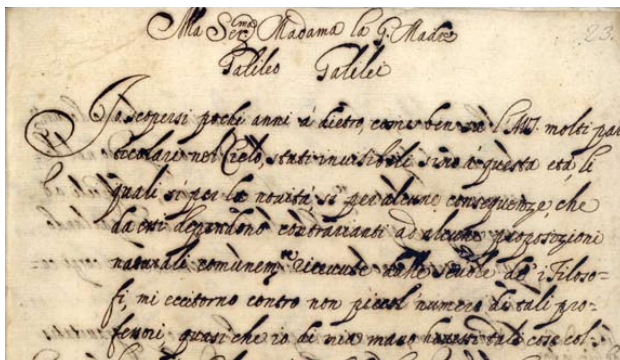 Alla Ser.ma Madama la G. Madre
23.
Galileo Galilei
Io scopersi pochi anni à dietro, come ben sà l'A.V. molti par
ticolari nel Cielo, stati invisibili sino à questa età, li
quali sì per la novità, sì per alcune conseguenze, che
da essi dependono contrarianti ad alcune proposizioni
naturali comunem.te ricevute dalle scuole de i Filoso=
fi, mi eccitorno contro non piccol numero di tali pro=
fessori, quasi che io di mia mano havessi tali cose col=